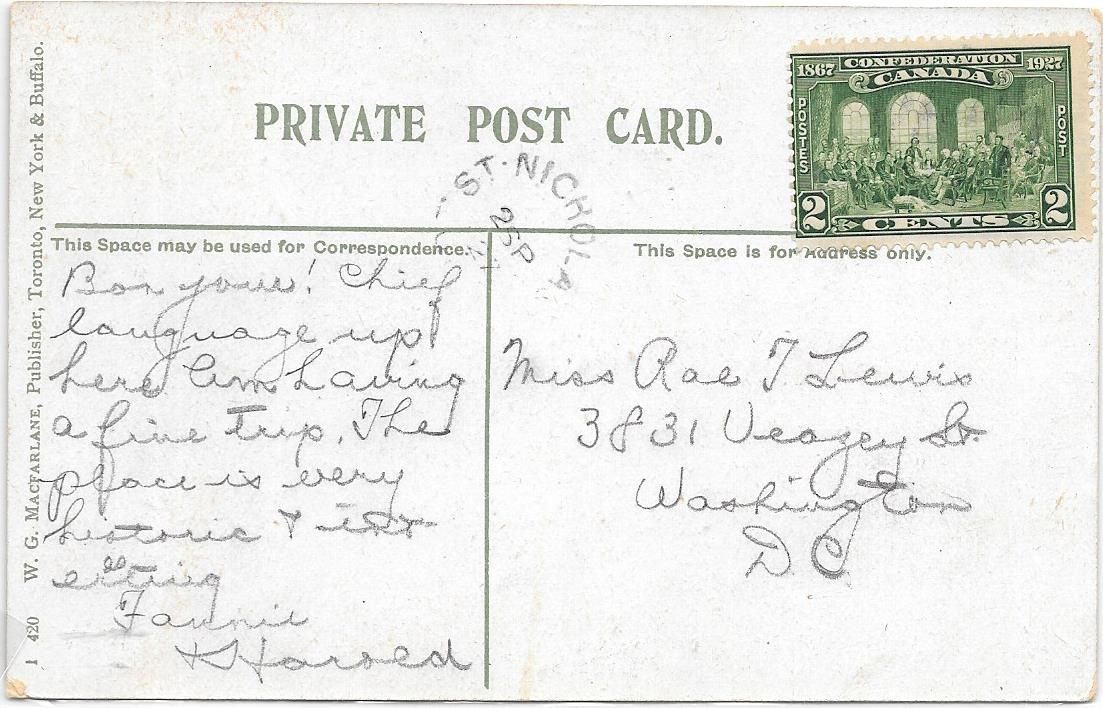 1867 CONFEDERATION 1927
CANADA
POSTES
POST
2 CENTS 2
PRIVATE POST CARD.
ST. NICHOLA
25 P
27
This Space may be used for Correspondence.
This Space is for Address only.
Bon jour! Chief
language up
here. Am having
a fine trip. The
place is very
historic & inter
esting
Fannie
& Harold
Miss Rae T Lewis
3831 Veazey St.
Washington
D C
1 420 W. G. MACFARLANE, Publisher, Toronto, New York & Buffalo.